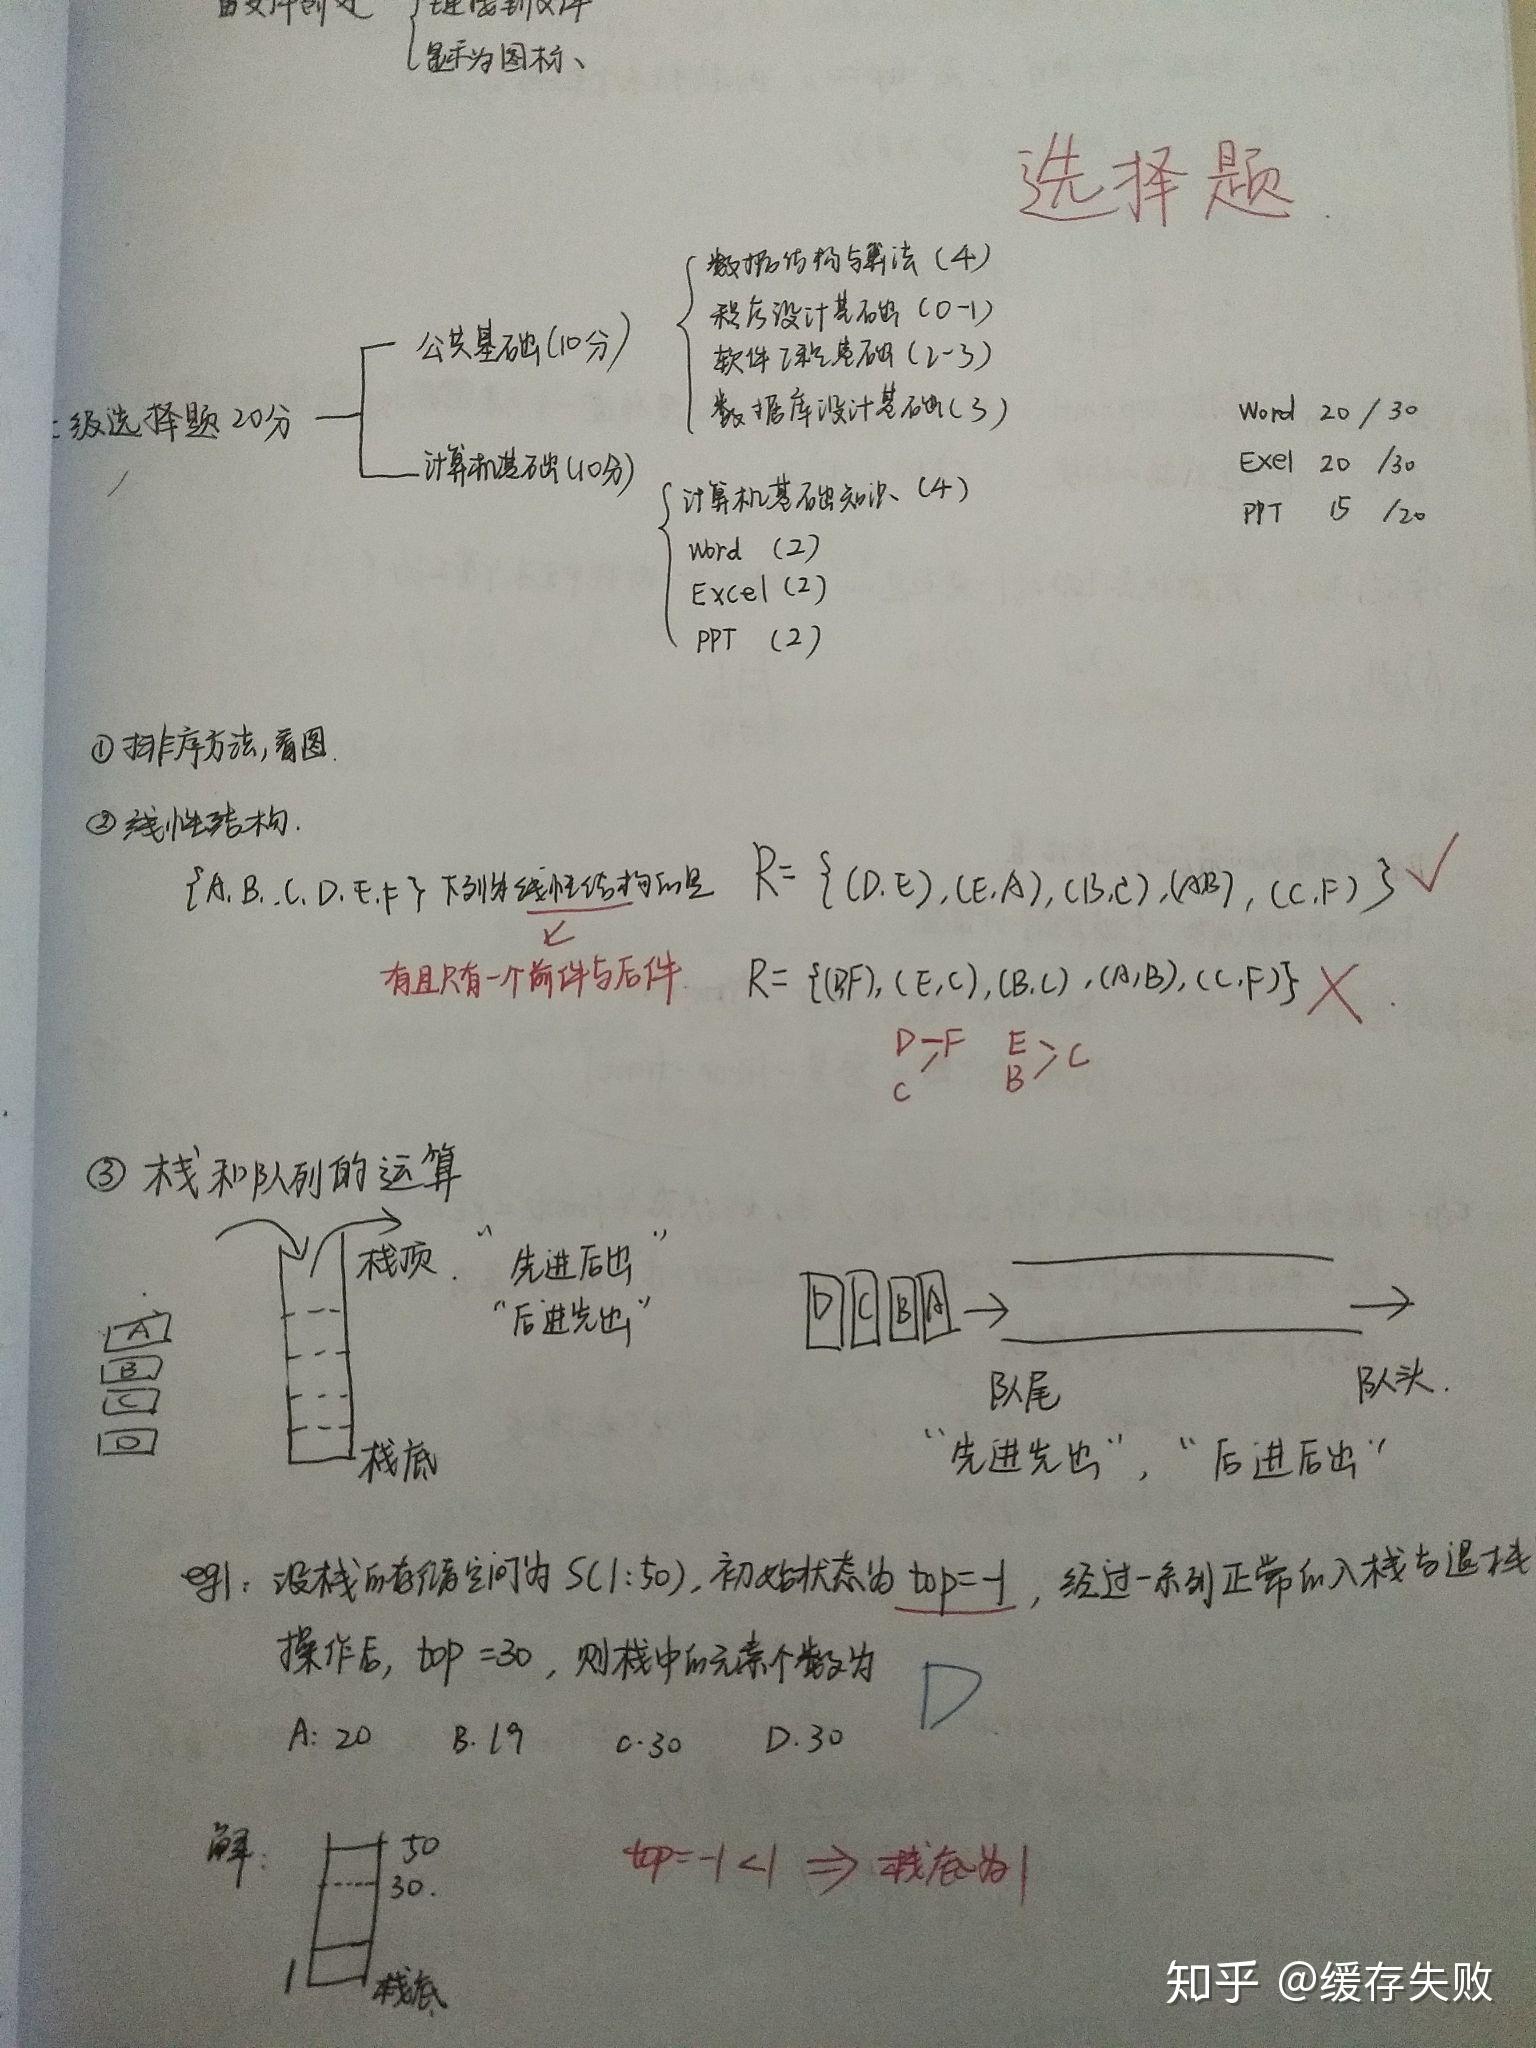 显示为图标、
选择题
数据结构与算法(4)
公共基础(10分)
程序设计基础(0-1)
软件工程基础(2-3)
数据库设计基础(3)
二级选择题20分
计算机基础(10分)
计算机基础知识、(4)
Word (2)
Excel (2)
PPT (2)
Word 20 / 30
Exel 20 /30
PPT 15 /20
①排序方法,看图.
②线性结构.
{A.B..C.D.E.F} 下列为线性结构的是 R={(D.E),(E.A),(B.C),(AB),(C.F)} ✓
有且只有一个前件与后件. R={(DF),(E,C),(B.C),(A,B),(C.F)} ×
D→F E
C B > C
③栈和队列的运算
栈顶. “先进后出”
“后进先出”
A
B
C
D
栈底
D C B A
队尾 队头.
“先进先出”,“后进后出”
eg1: 设栈的存储空间为S(1:50),初始状态为top=-1,经过一系列正常的入栈与退栈
操作后, top =30, 则栈中的元素个数为 D
A: 20 B.19 C.30 D.30
解: 50
30.
1 栈底
top=-1<1 ⇒ 栈底为1
知乎 @缓存失败